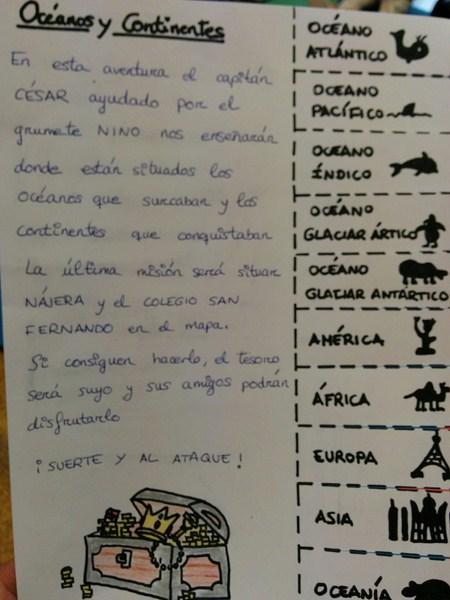 Océanos y Continentes
En esta aventura el capitán
CÉSAR ayudado por el
grumete NINO nos enseñarán
donde están situados los
océanos que surcaban y los
continentes que conquistaban
La última misión será situar
NÁJERA y el COLEGIO SAN
FERNANDO en el mapa.
Si consiguen hacerlo, el tesoro
será suyo y sus amigos podrán
disfrutarlo
¡SUERTE Y AL ATAQUE!
OCÉANO
ATLÁNTICO
OCEANO
PACÍFICO
OCEANO
ÍNDICO
OCÉANO
GLACIAR ÁRTICO
OCÉANO
GLACIAR ANTÁRTICO
AMÉRICA
ÁFRICA
EUROPA
ASIA
OCEANÍA